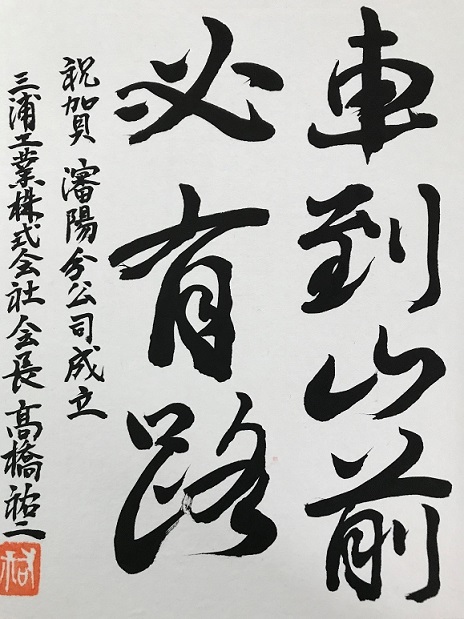 車到山前
必有路
祝賀 瀋陽分公司成立
三浦工業株式会社会長 髙橋祐二